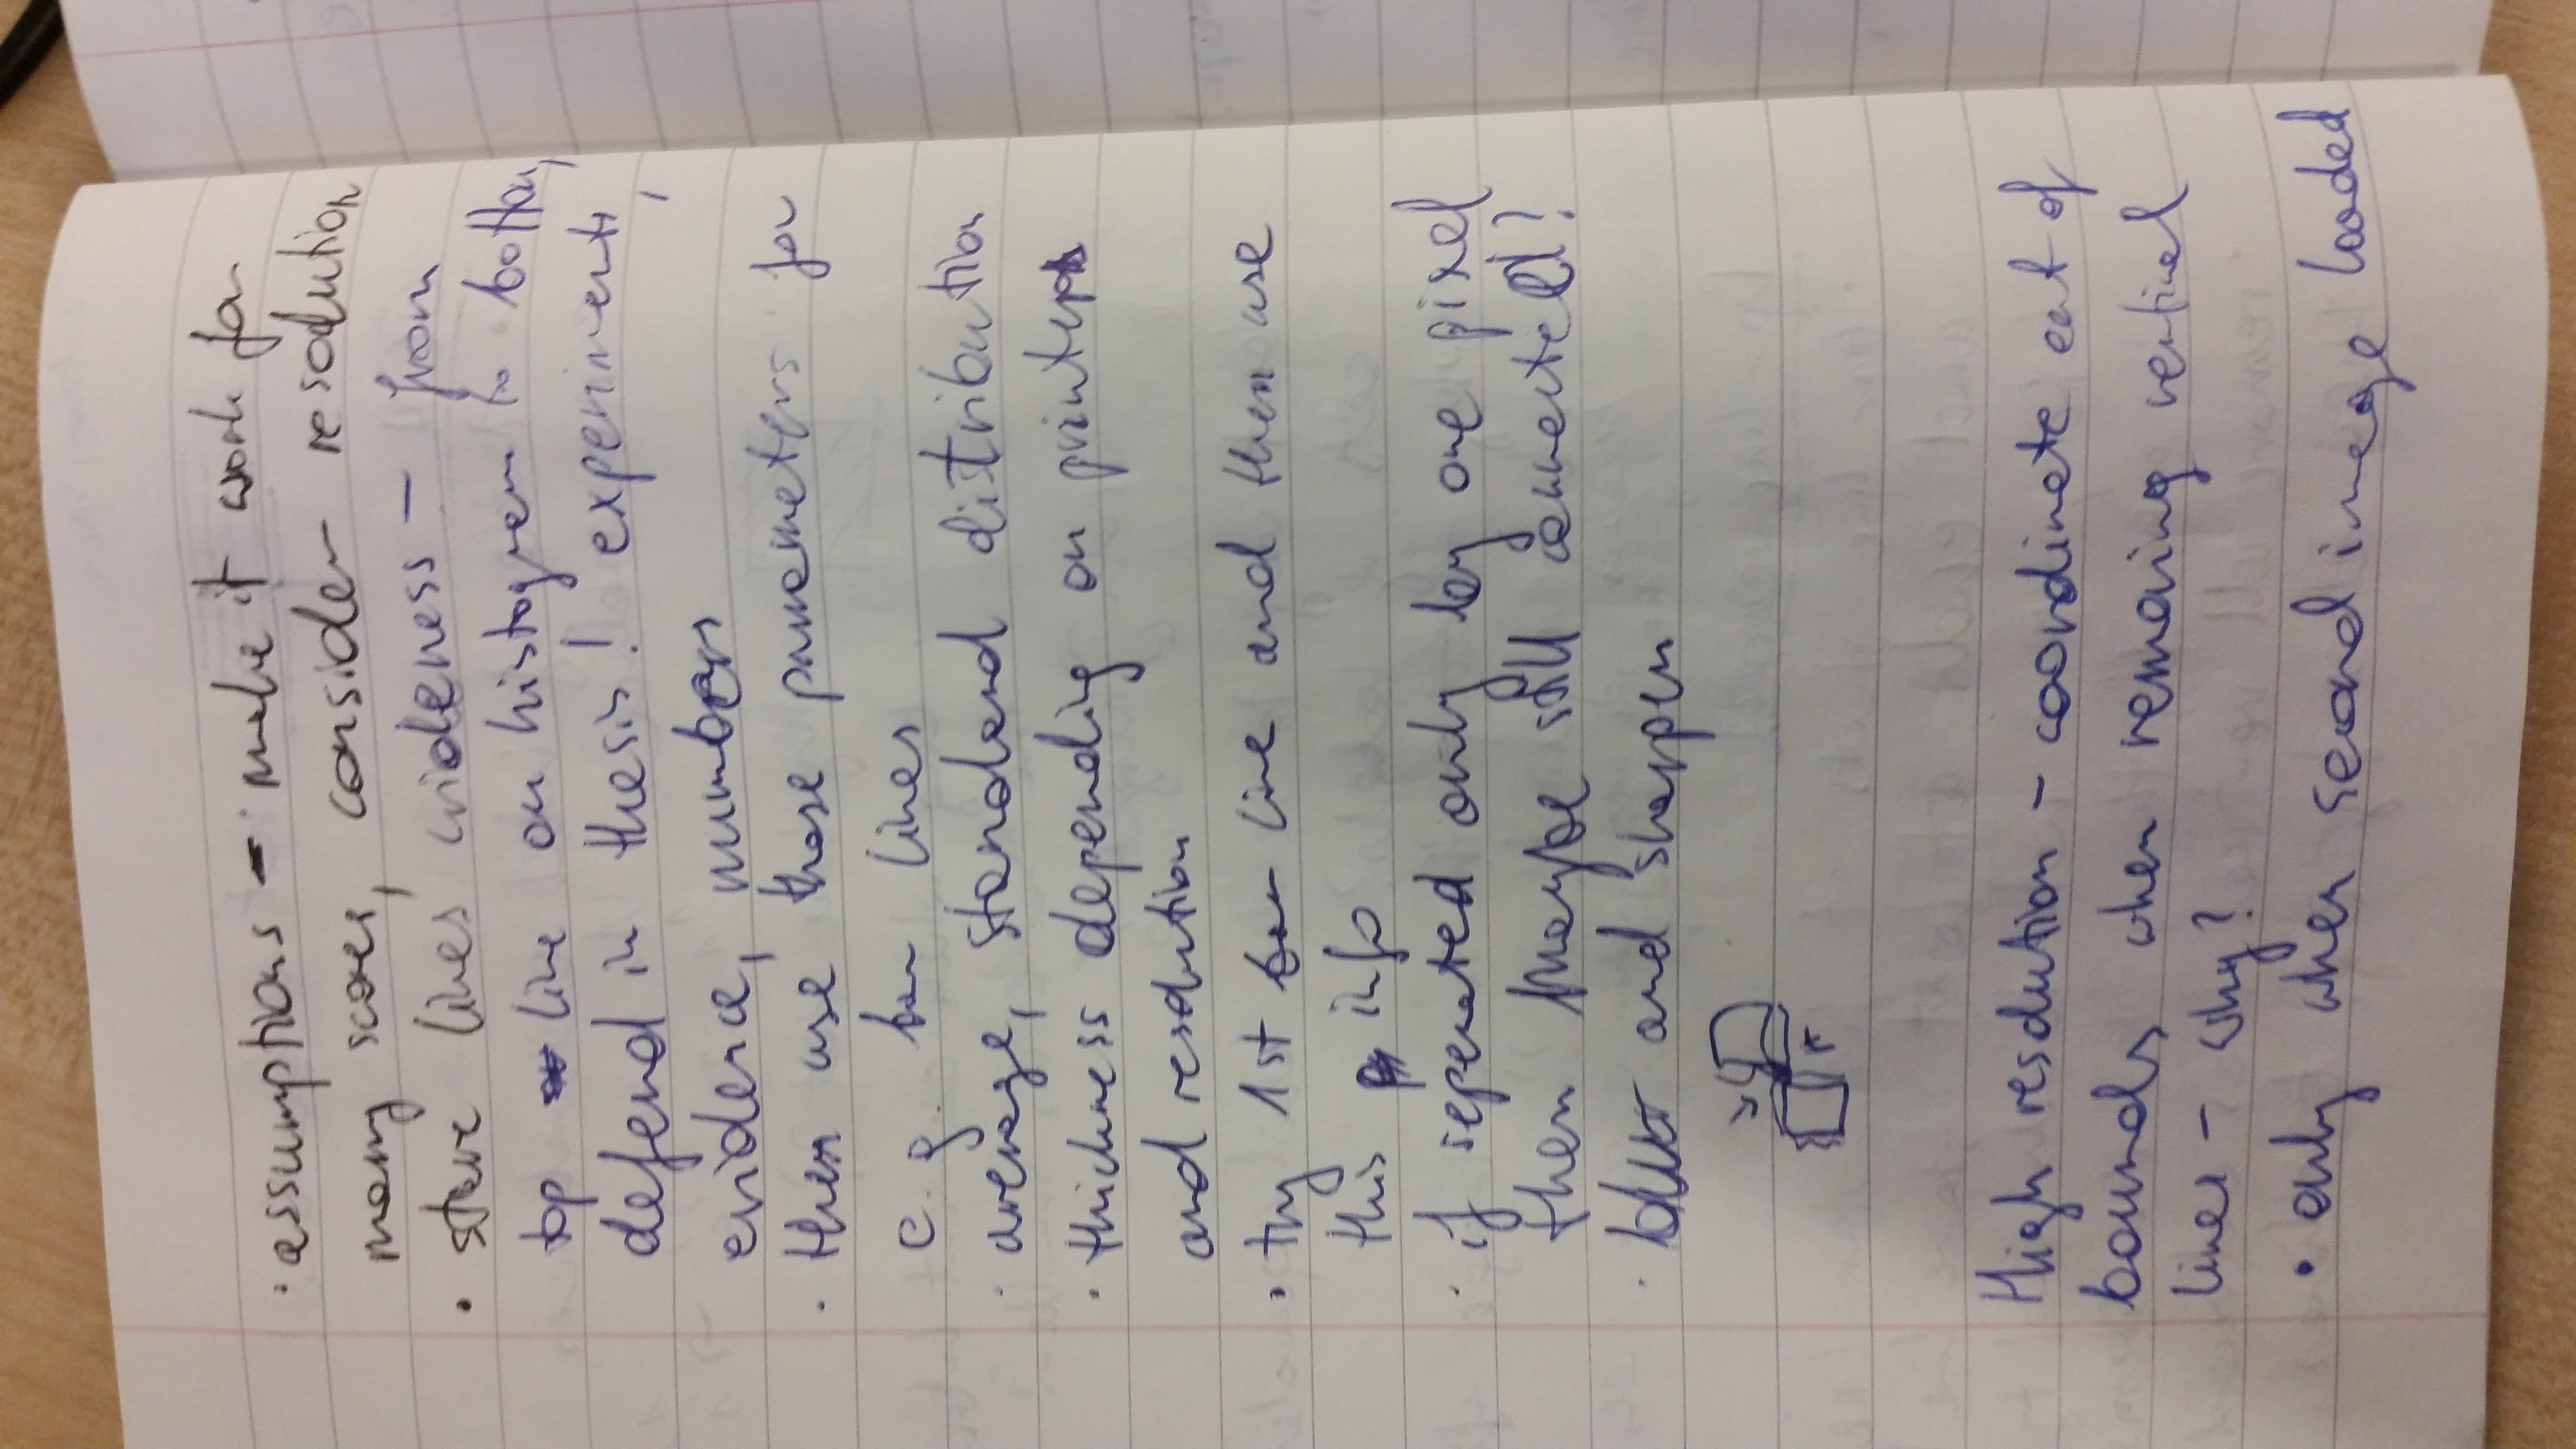 · assumptions - make it work for
many scores, consider resolution
· stave lines wideness - from
top line on histogram to bottom,
defend in thesis! experiments,
evidence, numbers
· then use those parameters for
e.g. bar lines
· average, standard distribution
· thickness depending on printers
and resolution
· try 1st bar line and then use
this info
· if seperated only by one pixel
then maybe still connected?
· blur and sharpen
High resolution - coordinate out of
bounds when removing vertical
lines - why?
· only when second image loaded